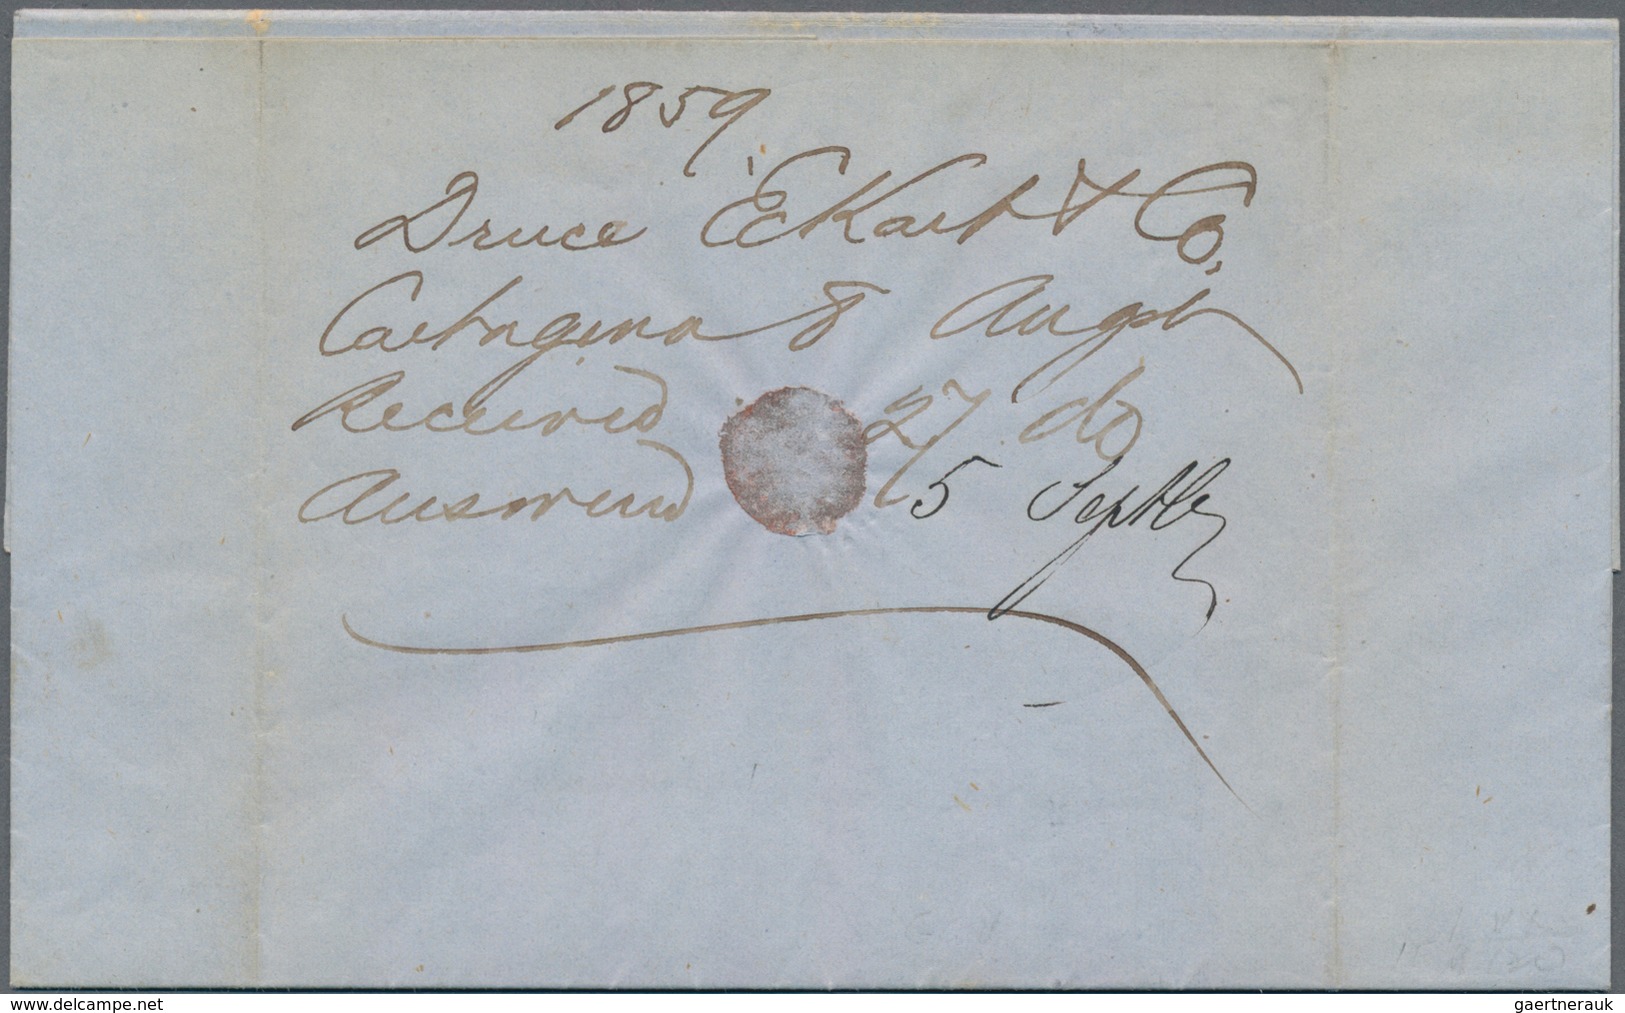 1859
Druce Eckart & Co.
Cartagena 8 Augst
Received 27 do
Answered 5 Septbr
delcampe.net
gaertnerauk